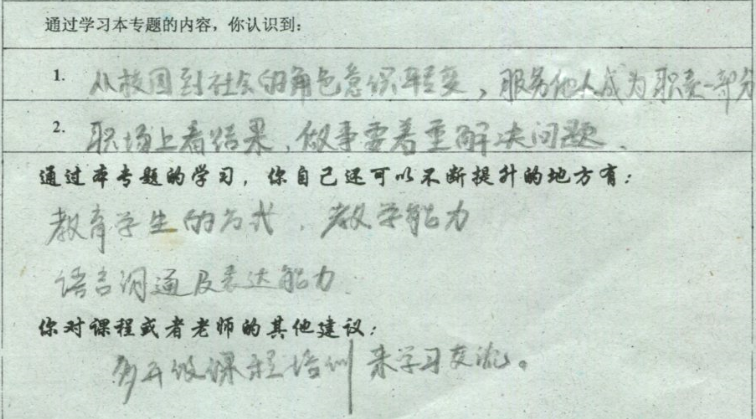 通过学习本专题的内容，你认识到：
1. 从校园到社会的角色意识转变，服务他人成为职责一部分
2. 职场上看结果，做事要着重解决问题.
通过本专题的学习，你自己还可以不断提升的地方有：
教育学生的方式、教学能力
语言沟通及表达能力.
你对课程或者老师的其他建议：
多开设课程培训 来学习交流。